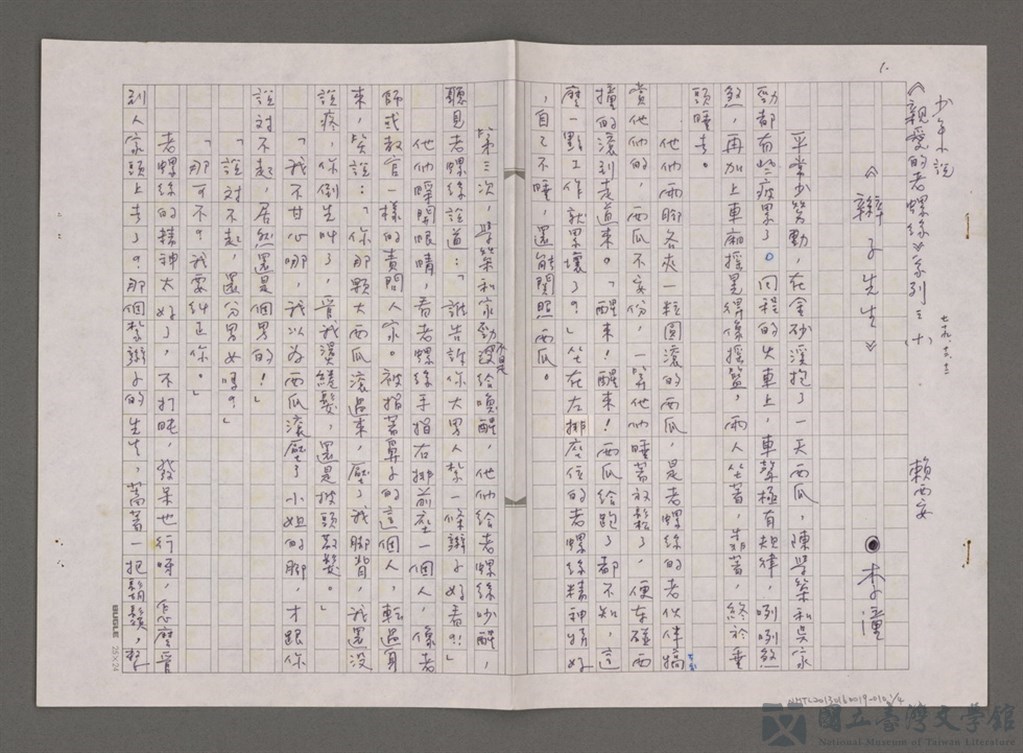 1.
少年小說
《親愛的老螺絲》系列之(十)
七九、六、三
《辮子先生》
賴西安
李潼
平常少勞動，在金砂溪抱了一天西瓜，陳學榮和吳家
勁都有些疲累了。回程的火車上，車聲極有規律，咧咧煞
煞，再加上車廂搖晃得像搖籃，兩人坐著，靠著，終於垂
頭睡去。
他們兩腳各夾一粒圓滾的西瓜，是老螺絲的老伙伴犒
賞他們的，西瓜不安份，一等他們睡著放鬆了，便東碰西
撞的滾到走道來。「醒來！醒來！西瓜給跑了都不知，這
麼一點工作就累壞了？」坐在左排座位的老螺絲精神特好
，自己不睡，還能關照西瓜。
等第三次，學榮和家勁給喚醒，他們給老螺絲吵醒，
聽見老螺絲說道：「誰告訴你大男人紮一條辮子好看？！」
他們睜開眼睛，看老螺絲手指右排前座一個人，像老
師或教官一樣的責問人家。被指著鼻子的這個人，轉過身
來，笑說：「你那顆大西瓜滾過來，壓了我腳背，我還沒
說疼，你倒先叫了，管我漢纏髮，還是披頭散髮。」
「我不甘心哪，我以為西瓜滾壓了小姐的腳，才跟你
說對不起，居然還是個男的！」
「說對不起，還分男女嗎？」
「那可不？我要糾正你。」
老螺絲的精神太好了，不打盹，發呆也行呀，怎麼管
到人家頭上去了？那個紮辮子的先生，蓄著一把鬍鬚，整
BUGLE 25×24
NMTL20130160019-010 1/4
國立臺灣文學館
National Museum of Taiwan Literature